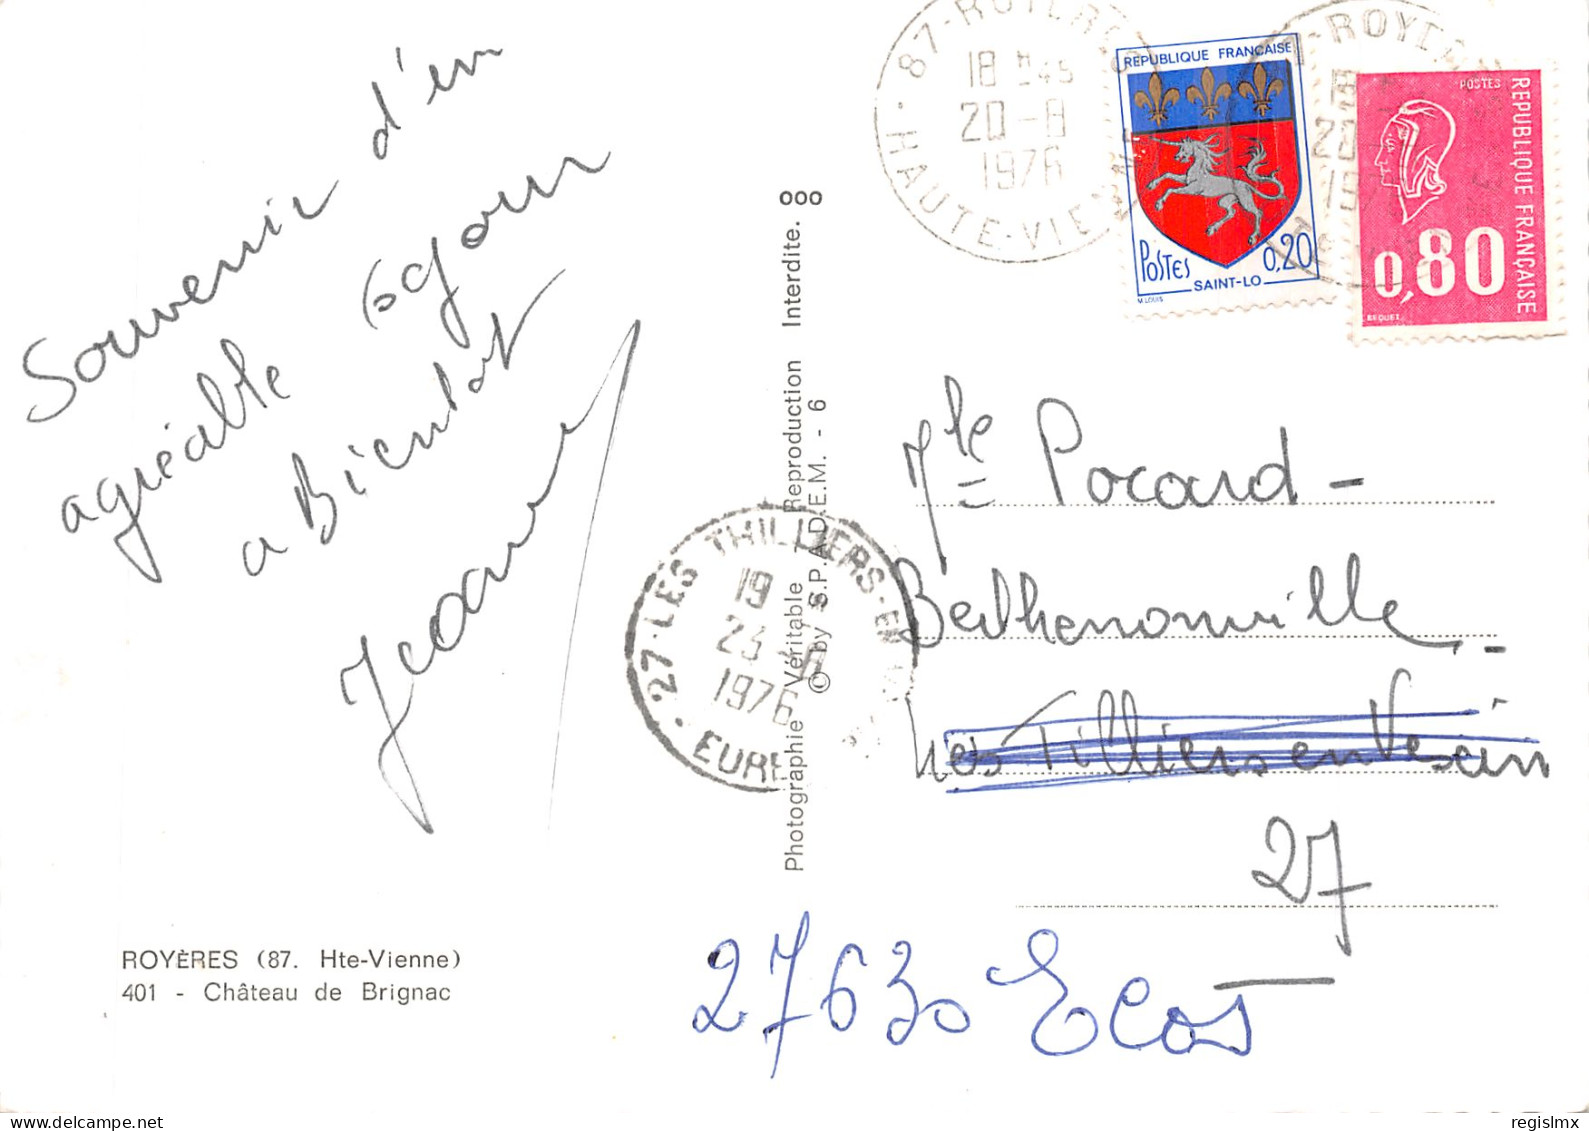 Souvenir d'un
agréable séjour
a Bientot
Jeanne
ROYÈRES (87. Hte-Vienne)
401 - Château de Brignac
Photographie Véritable Reproduction Interdite.
© by S.P.A.D.E.M. - 6
000
87-ROYERES
18 H 45
20-8
1976
HAUTE-VIENNE
REPUBLIQUE FRANÇAISE
POSTES 0,20
SAINT-LO
M. LOUIS
POSTES
REPUBLIQUE FRANÇAISE
0,80
BEQUET
27-LES THILLIERS-EN
19
23-8
1976
EURE
Mle Pocard -
Berthenonville -
Les Tilliers en Vexin
27
27630 Ecos
regislmx